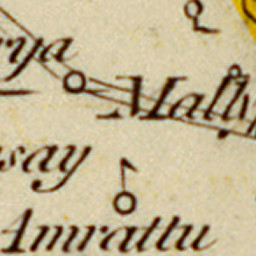 rya
Mally
say
Amrattu